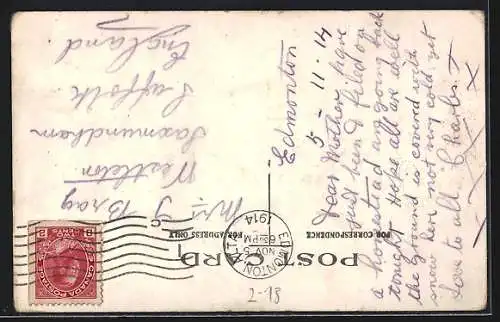 POST CARD
FOR CORRESPONDENCE
FOR ADDRESS ONLY
CANADA POSTAGE
2 CENTS 2
EDMONTON ALTA
NOV 5
6 30 PM
1914
Edmonton
5 - 11 - 14
Dear Mother have
just been & filed on
a homestead am going back
tonight Hope all are well
the ground is covered with
snow here not very cold yet
Love to all. Charles
Mrs J Brag
Westleton
Saxmundham
Suffolk
England.
2-18